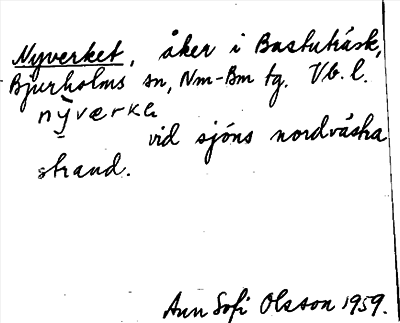 Nyverket, åker i Bastuträsk,
Bjurholms sn, Nm-Bm tg. Vb. l.
vid sjöns nordvästra
strand.
Ann Sofi Olsson 1959.